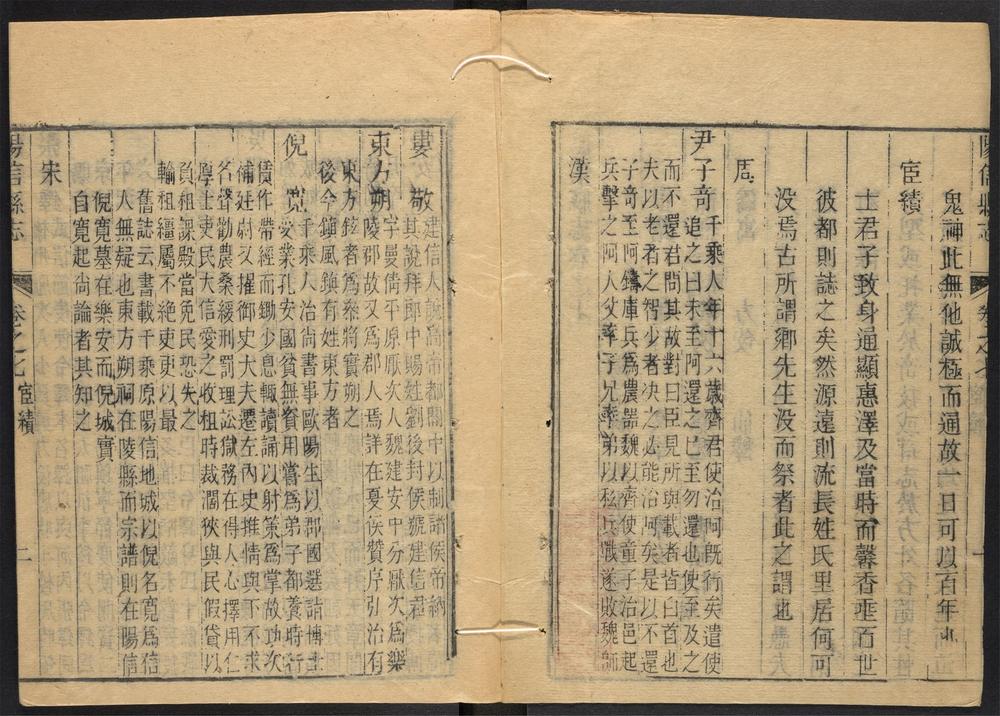 陽信縣志
卷之七
鬼神此無他誠極而通故一日可以百年也
宦績
士君子致身通顯惠澤及當時而馨香垂百世
彼都則誌之矣然源遠則流長姓氏里居何可
没焉古所謂鄉先生没而祭者此之謂也
周
尹子奇
千乘人年十六歲齊君使治阿旣行矣遣使
追之曰未至阿還之已至勿還也使至及之
而不還君問其故對曰臣見所與載者皆白首也
夫以老者之智少者决之必能治阿矣是以不還
子奇至阿鑄庫兵爲農器魏以齊使童子治邑起
兵擊之阿人父率子兄率弟以私兵戰遂敗魏師
漢
婁敬
建信人說高帝都關中以制諸侯帝納
其說拜郎中賜姓劉後封侯號建信君
東方朔
字曼倩平原厭次人魏建安中分厭次爲樂
陵郡故又爲郡人焉詳在夏侯贊序引治有
東方鉉者爲泰將實朔之
後今鎮風鎮有姓東方者
倪寬
千乘人治尚書事歐陽生以郡國選詣博士
受業孔安國貧無資用嘗爲弟子都養時行
賃作帶經而鋤少息輒讀誦以射策爲掌故功次
補廷尉又擢御史大夫遷左内史推情與下不求
名聲勸農桑緩刑罰理訟獄務在得人心擇用仁
厚士吏民大信愛之收租時裁濶狹與民假貸以
負租課殿當免民恐失之
輸租繦屬不絶吏更以最
舊誌云書載千乘原陽信地城以倪名寬爲信
人無疑也東方朔祠在陵縣而宗譜則在陽信
倪寬墓在樂安而倪城實
自寬起尚論者其知之
宋
陽信縣志
卷之七
宦績
二